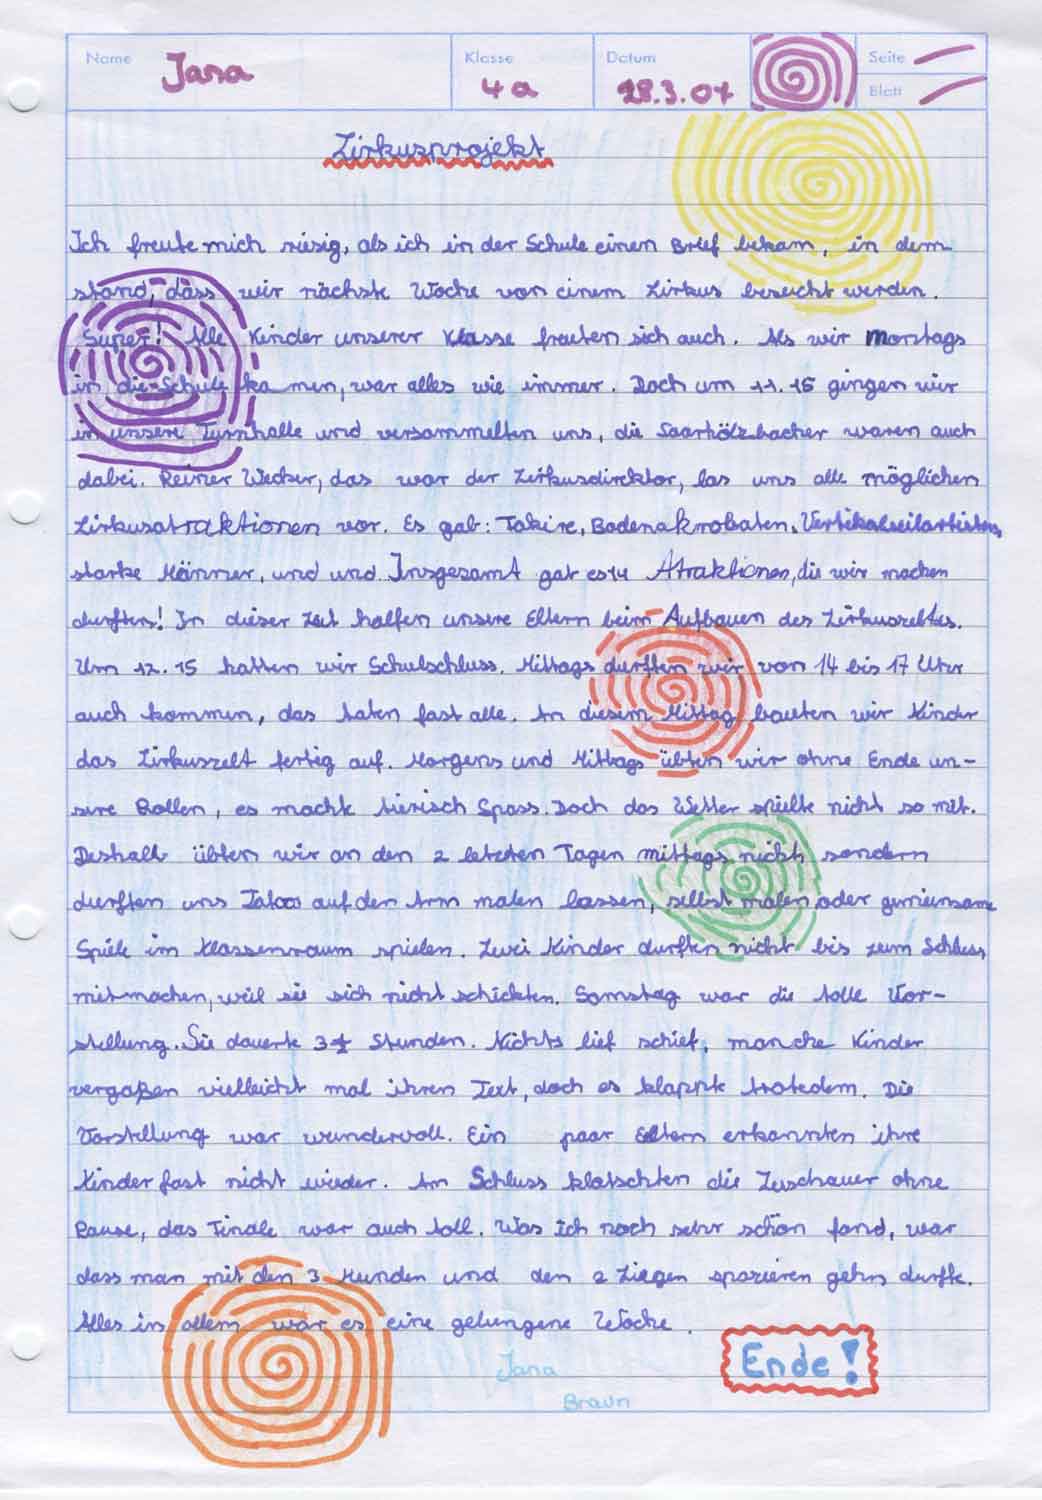 Name Jana Klasse 4a Datum 28.3.07 Seite
Blatt
Zirkusprojekt
Ich freute mich riesig, als ich in der Schule einen Brief bekam, in dem
stand, dass wir nächste Woche von einem Zirkus besucht werden.
Super! Alle Kinder unserer Klasse freuten sich auch. Als wir Montags
in die Schule kamen, war alles wie immer. Doch um 11.15 gingen wir
in unsere Turnhalle und versammelten uns, die Saarhölzbacher waren auch
dabei. Reiner Wecker, das war der Zirkusdirektor, las uns alle möglichen
Zirkusatraktionen vor. Es gab: Fakire, Bodenakrobaten, Vertikalseilartisten,
starke Männer, und und. Insgesamt gab es 14 Atraktionen, die wir machen
durften! In dieser Zeit halfen unsere Eltern beim Aufbauen des Zirkuszeltes.
Um 12.15 hatten wir Schulschluss. Mittags durften wir von 14 bis 17 Uhr
auch kommen, das taten fast alle. An diesem Mittag bauten wir Kinder
das Zirkuszelt fertig auf. Morgens und Mittags übten wir ohne Ende un-
sere Rollen, es machte tierisch Spass. Doch das Wetter spielte nicht so mit.
Deshalb übten wir an den 2 letzten Tagen mittags nicht sondern
durften uns Tatoo auf den Arm malen lassen, selbst malen oder gemeinsame
Spiele im Klassenraum spielen. Zwei Kinder durften nicht bis zum Schluss
mitmachen, weil sie sich nicht schickten. Samstag war die tolle Vor-
stellung. Sie dauerte Stunden. Nichts lief schief, manche Kinder
vergaßen vielleicht mal ihren Text, doch es klappte trotzdem. Die
Vorstellung war wundervoll. Ein paar Eltern erkannten ihre
Kinder fast nicht wieder. Am Schluss klatschten die Zuschauer ohne
Pause, das Finale war auch toll. Was ich noch sehr schön fand, war
dass man mit den 3 Hunden und den 2 Ziegen spazieren gehn durfte.
Alles in allem war es eine gelungene Woche.
Jana
Braun
Ende!